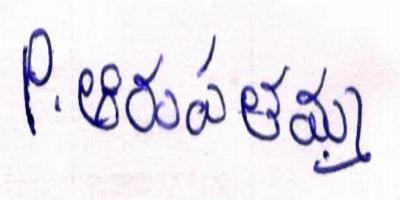 P. ఆరుపతమ్మ